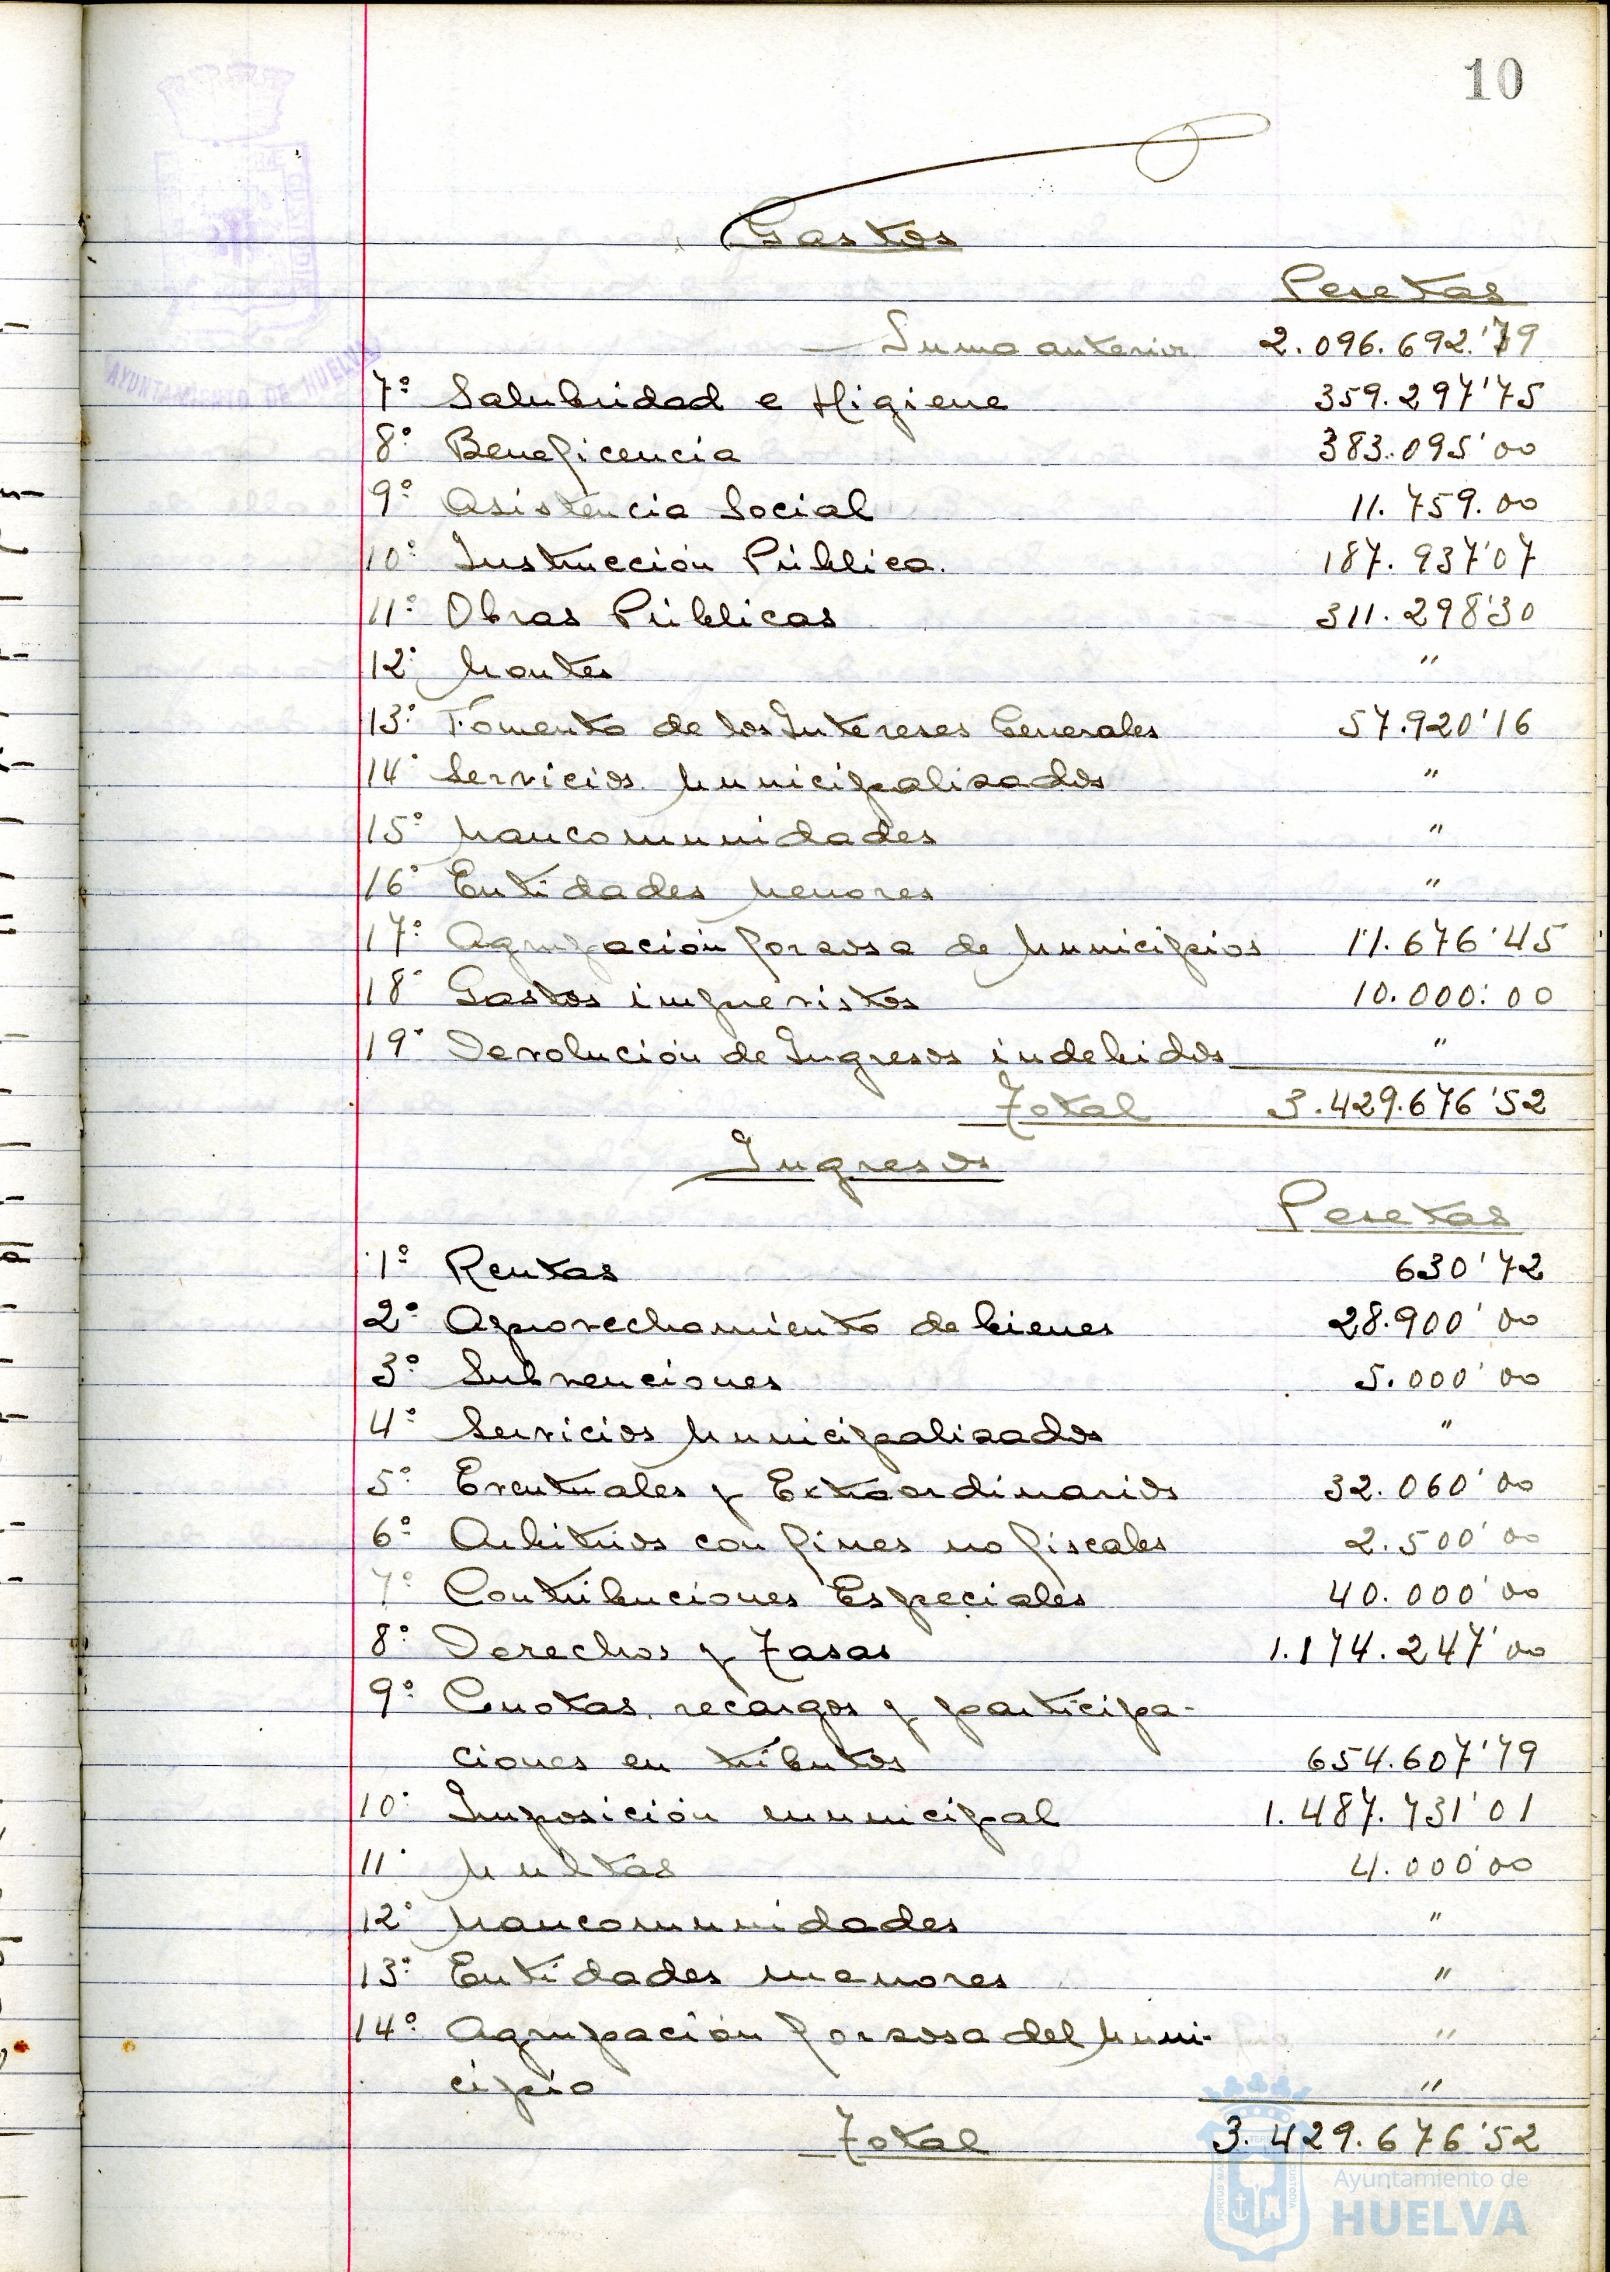 10
Gastos
Pesetas
Suma anterior 2.096.692.'79
7º Salubridad e Higiene 359.297'75
8º Beneficencia 383.095'00
9º Asistencia Social 11.759.00
10º Instrucción Pública. 187.937'07
11º Obras Públicas 311.298'30
12º Montes "
13º Fomento de los Intereses Generales 57.920'16
14º Servicios Municipalizados "
15º Mancomunidades "
16º Entidades Menores "
17º Agrupación forzosa de Municipios 11.676'45
18º Gastos imprevistos 10.000'00
19º Devolución de Ingresos indebidos "
Total 3.429.676'52
Ingresos
Pesetas
1º Rentas 630'72
2º Aprovechamiento de bienes 28.900'00
3º Subvenciones 5.000'00
4º Servicios Municipalizados "
5º Eventuales y Extraordinarios 32.060'00
6º Arbitrios con fines no fiscales 2.500'00
7º Contribuciones Especiales 40.000'00
8º Derechos y Tasas 1.174.247'00
9º Cuotas, recargos y participa-
ciones en tributos 654.607'79
10º Imposición municipal 1.487.731'01
11º Multas 4.000'00
12º Mancomunidades "
13º Entidades menores "
14º Agrupación forzosa del Muni- "
cipio "
Total 3.429.676'52
AYUNTAMIENTO DE HUELVA
Ayuntamiento de
HUELVA